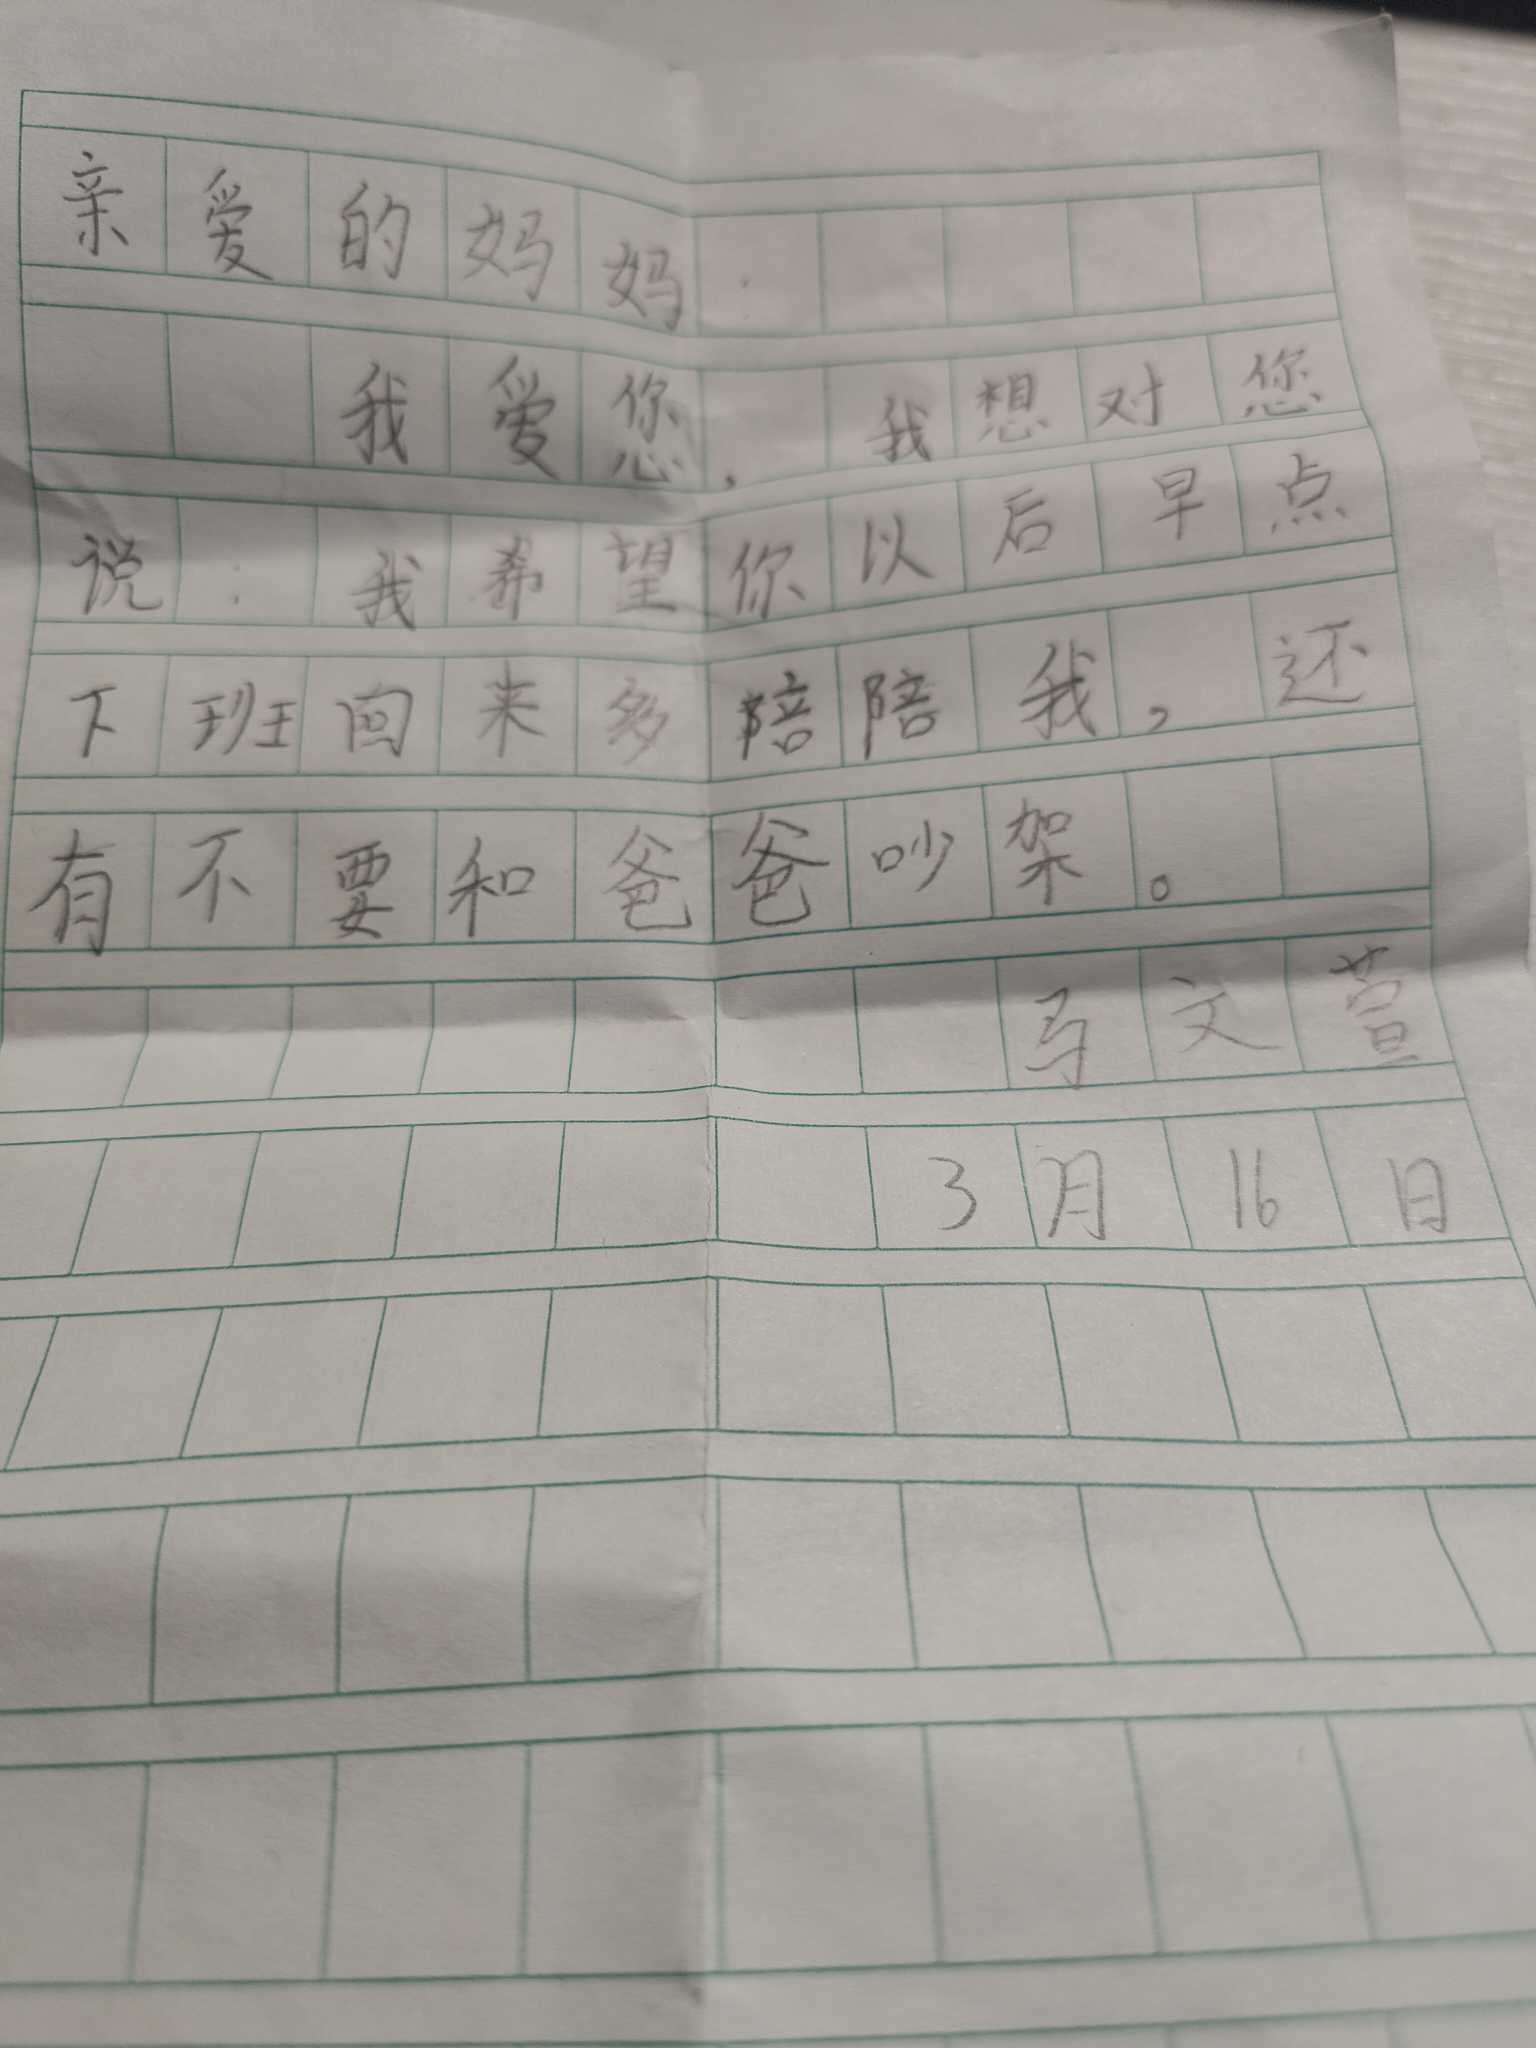 亲爱的妈妈:
我爱您,我想对您
说:我希望你以后早点
下班回来多陪陪我,还
有不要和爸爸吵架。
马文萱
3月16日